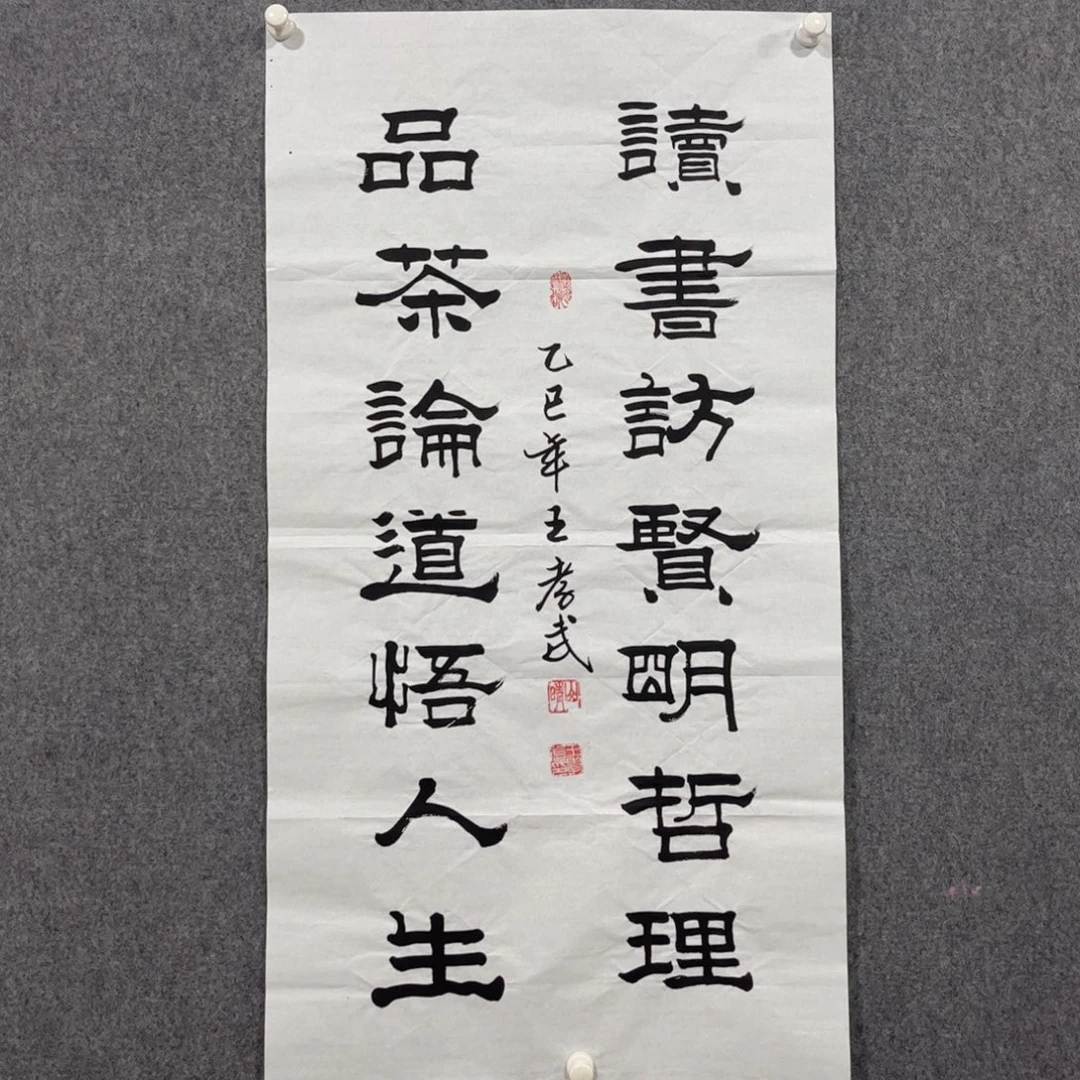 讀書訪賢明哲理
乙巳年王孝武
品茶論道悟人生